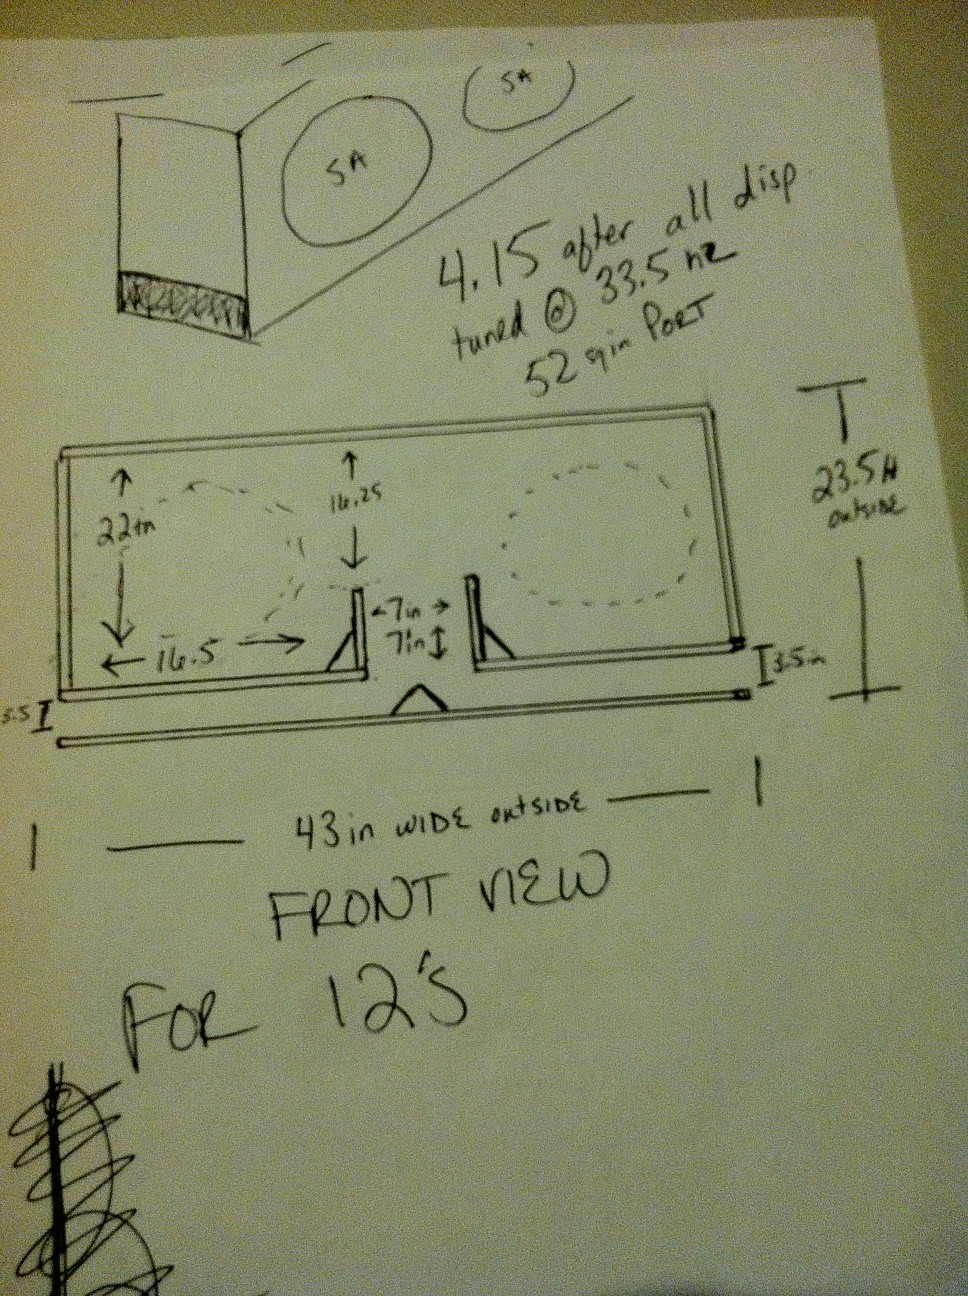 SA
SA
4.15 after all disp
tuned @ 33.5 hz
52 sq in PORT
22in
16.25
7in
7in
16.5
3.5in
23.5H
outside
43in WIDE outSIDE
FRONT VIEW
FOR 12's